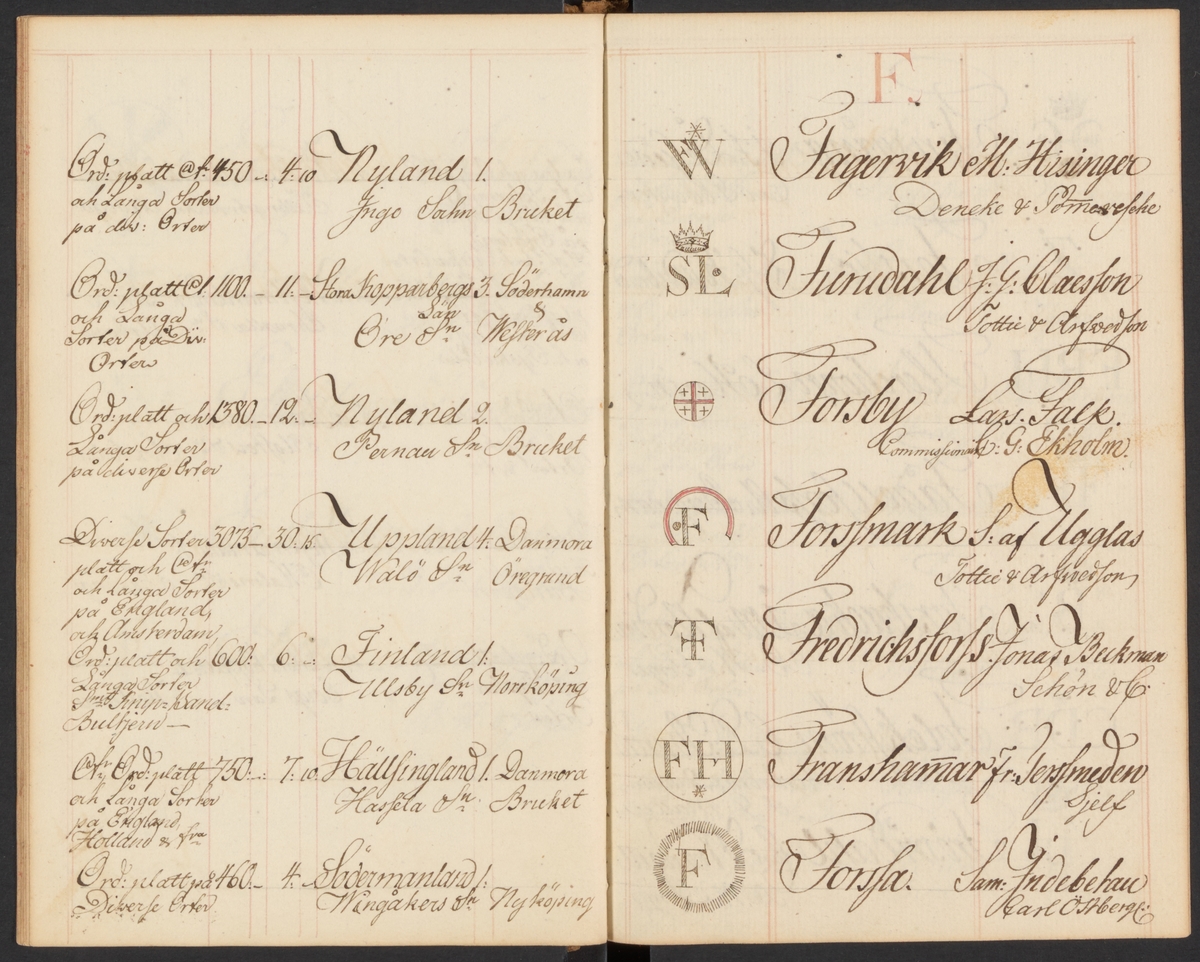 Ord: platt @t: 450 –: 4: 10 Nyland 1.
och Långa Sorter Ingo Sochn Bruket
på div: Orter
Ord: platt @t: 1100. – 11: – Stora Kopparbergs 3. Söderhamn
och Långa Län
Sorter på Div: Ore Sn Westerås
Orter
Ord: platt och 1380. – 12: – Nyland 2.
Långa Sorter Pernau Sn Bruket
på diverse Orter
Diverse Sorter 3075 – 30: 15. Uppland 4: Danmora
platt och Walö Sn Öregrund
och Långa Sorter
på England,
och Amsterdam,
Ord: platt och 600: 6: –: Finland 1:
Långa Sorter Ulfsby Sn Norrköping
Knip- Band-
Bultjern —
Ord: platt 750: –: 7: 10 Hällsingland 1. Danmora
och Långa Sorter Hassela Sn Bruket
på England
Holland &
Ord: platt på 460. – 4: – Södermanland 1:
Diverse Orter Wingåkers Sn Nyköping
F.
W Fagervik M: Hisinger
Deneke &
SL Furudahl J: G: Claesson
Tottie & Arfvedson
Forsby Lars: Falk.
Commissionair G: Ekholm.
F Forssmark S: af Ugglas
Tottie & Arfvedson,
Fredrichsforss. Jonas Beckman
Schön & C:
FH Franshamar Fr: Terssmeden
Sjelf
F Forssa. Sam: Indebetau
Carl Östberg